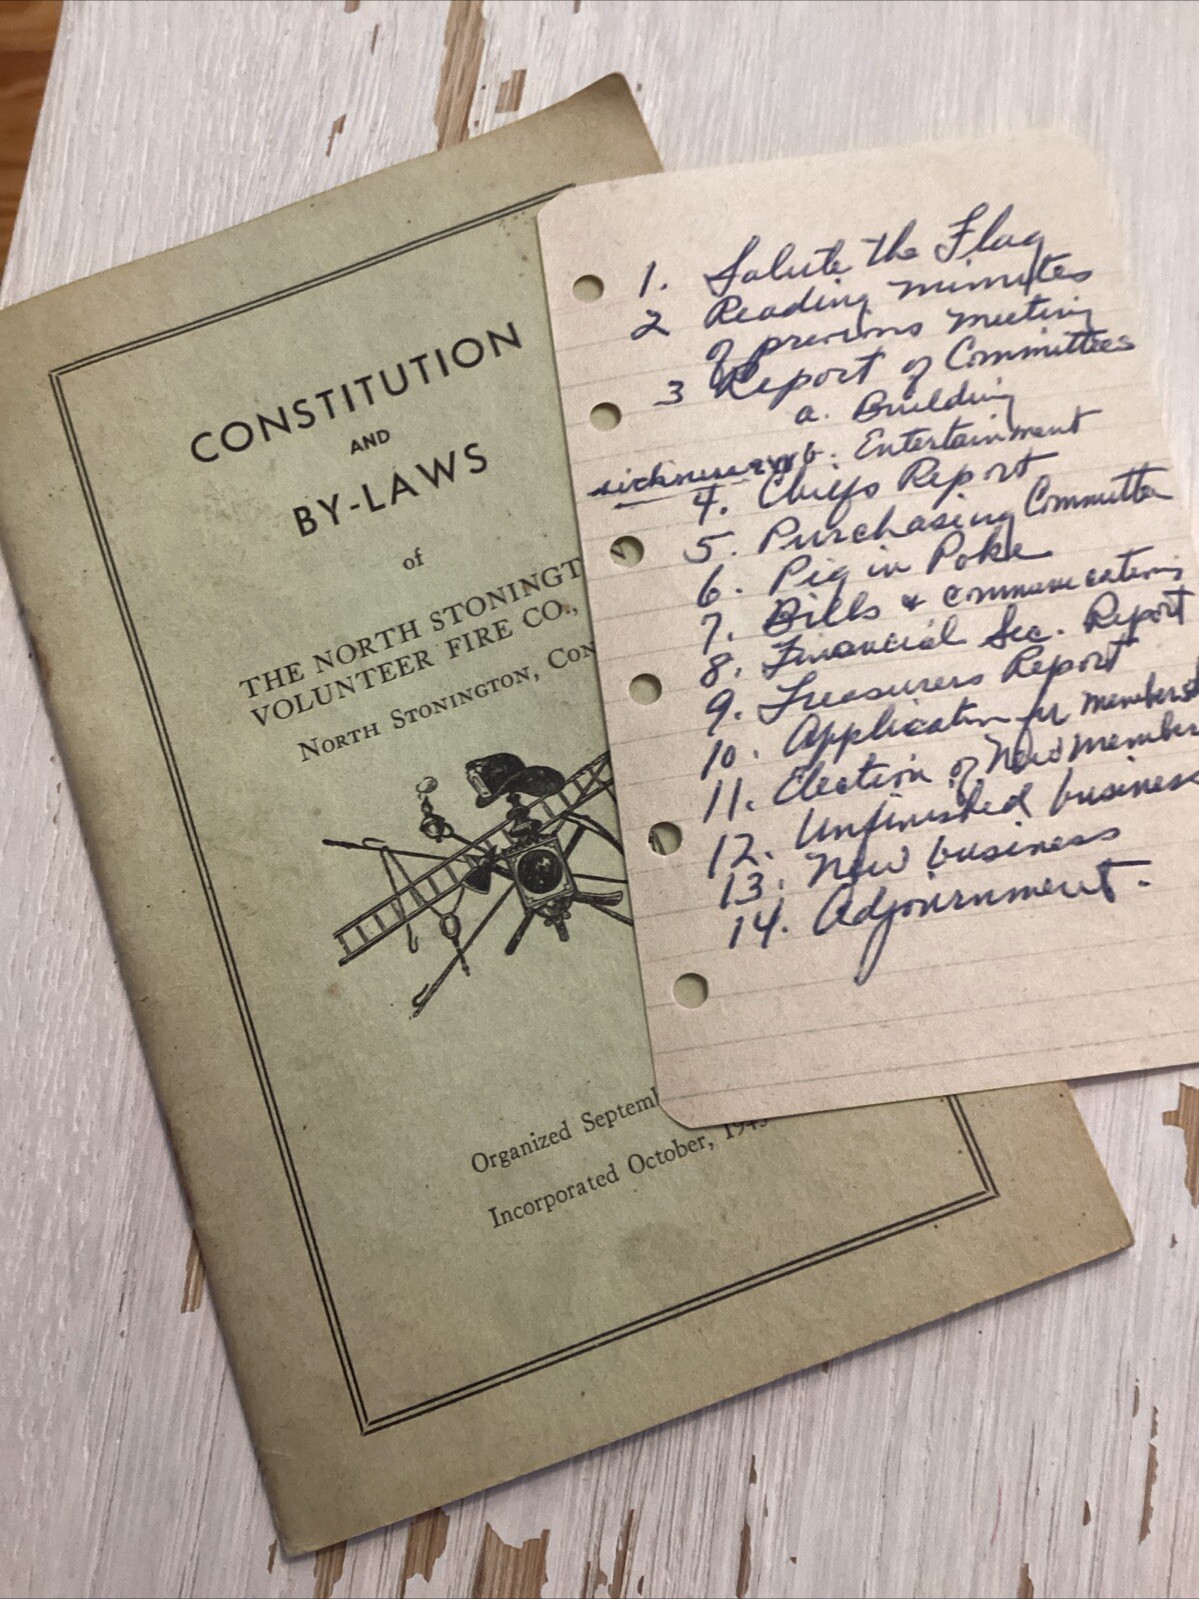 CONSTITUTION
AND
BY-LAWS
of
THE NORTH STONINGT
VOLUNTEER FIRE CO.,
NORTH STONINGTON, CON
Organized Septemb
Incorporated October, 194
1. Salute the Flag
2 Reading minutes
of previous meeting
3 Report of Committees
a. Building
b. Entertainment
4. Chiefs Report
5. Purchasing Committee
6. Pig in Poke
7. Bills & communications
8. Financial Sec. Report
9. Treasurers Report
10. Application for members
11. Election of New member
12. Unfinished business
13. New business
14. Adjournment.